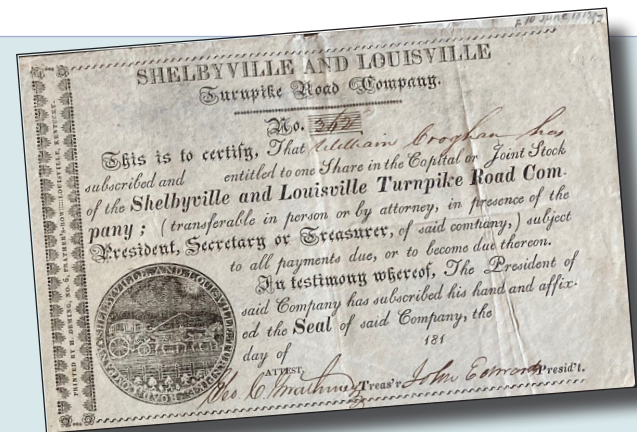 SHELBYVILLE AND LOUISVILLE
Turnpike Road Company.
No. 362
This is to certify, That William Croghan has
subscribed and entitled to one Share in the Capital or Joint Stock
of the Shelbyville and Louisville Turnpike Road Com-
pany; (transferable in person or by attorney, in presence of the
President, Secretary or Treasurer, of said company,) subject
to all payments due, or to become due thereon.
In testimony whereof, The President of
said Company has subscribed his hand and affix-
ed the Seal of said Company, the
day of 181
ATTEST,
Treas'r. John Edwards Presid't.
SHELBYVILLE AND LOUISVILLE TURNPIKE ROAD COMPANY
PRINTED BY W. DEERING, NO. 6, PRATHER'S-ROW::::LOUISVILLE, KENTUCKY.